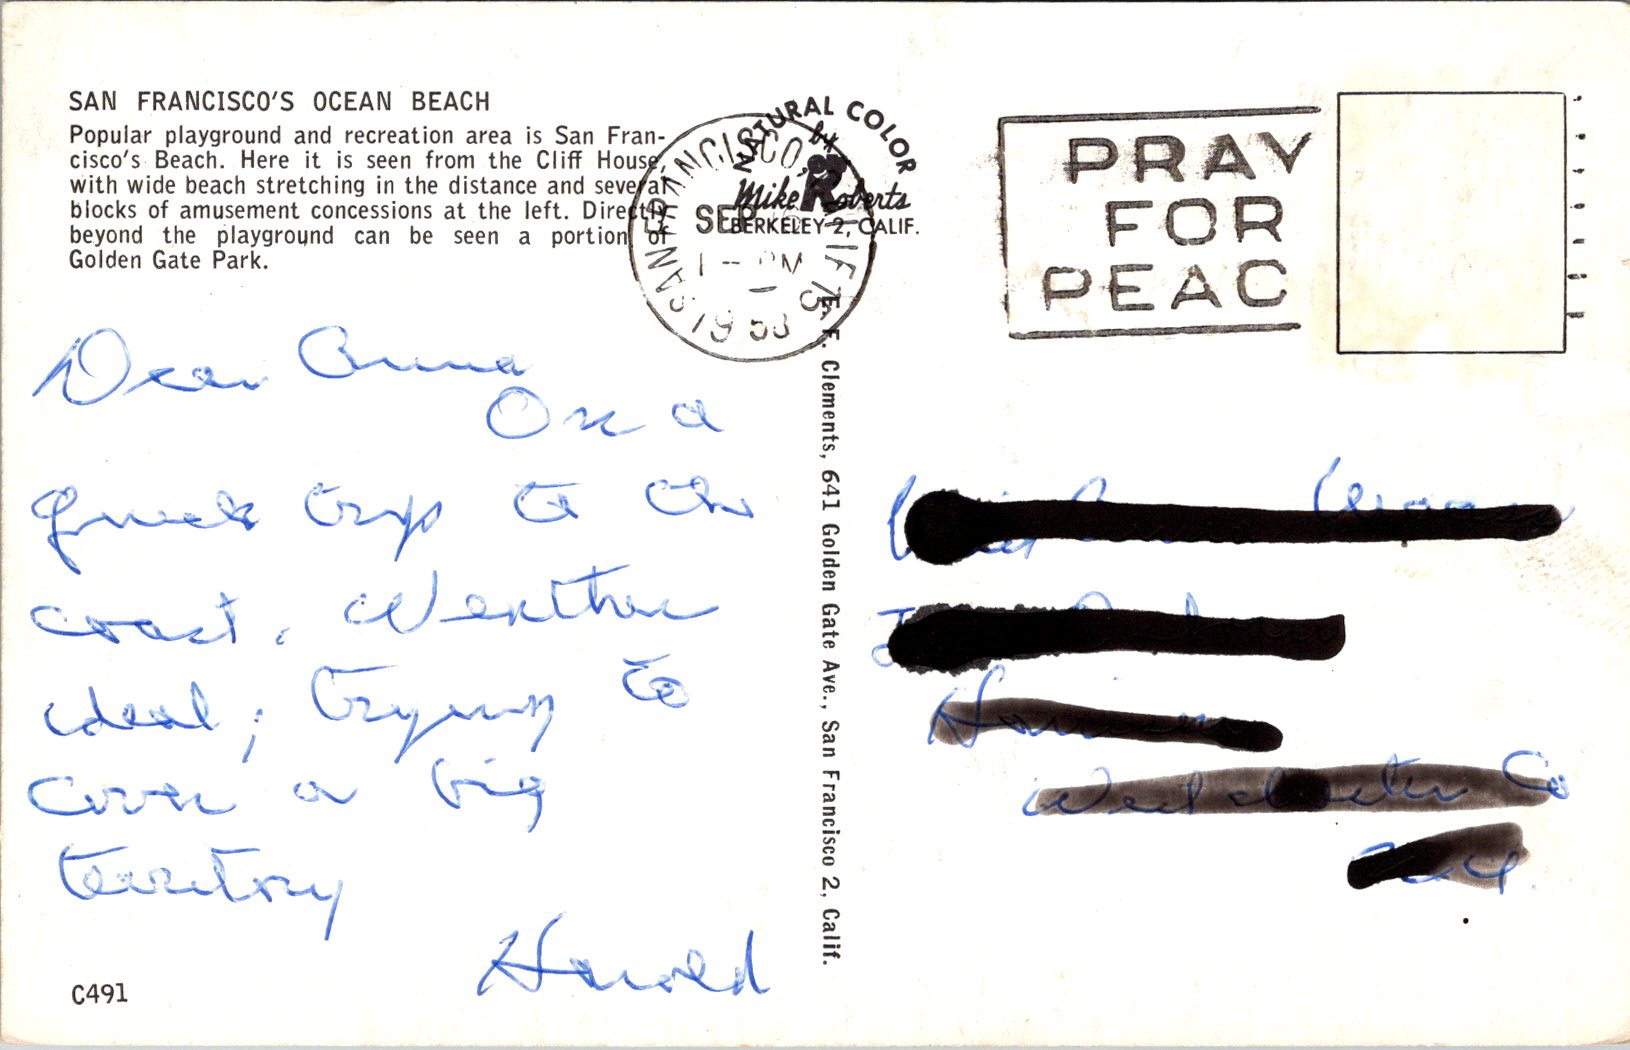 SAN FRANCISCO'S OCEAN BEACH
Popular playground and recreation area is San Fran-
cisco's Beach. Here it is seen from the Cliff House
with wide beach stretching in the distance and several
blocks of amusement concessions at the left. Directly
beyond the playground can be seen a portion of
Golden Gate Park.
Dear Anna
On a
quick trip to the
coast. Weather
ideal; trying to
cover a big
territory
Harold
C491
SAN FRANCISCO, CALIF.
SEP
1 - PM
1958
NATURAL COLOR
by
Mike Roberts
BERKELEY 2, CALIF.
E. F. Clements, 641 Golden Gate Ave., San Francisco 2, Calif.
PRAY
FOR
PEAC
Westchester Co
N.Y.